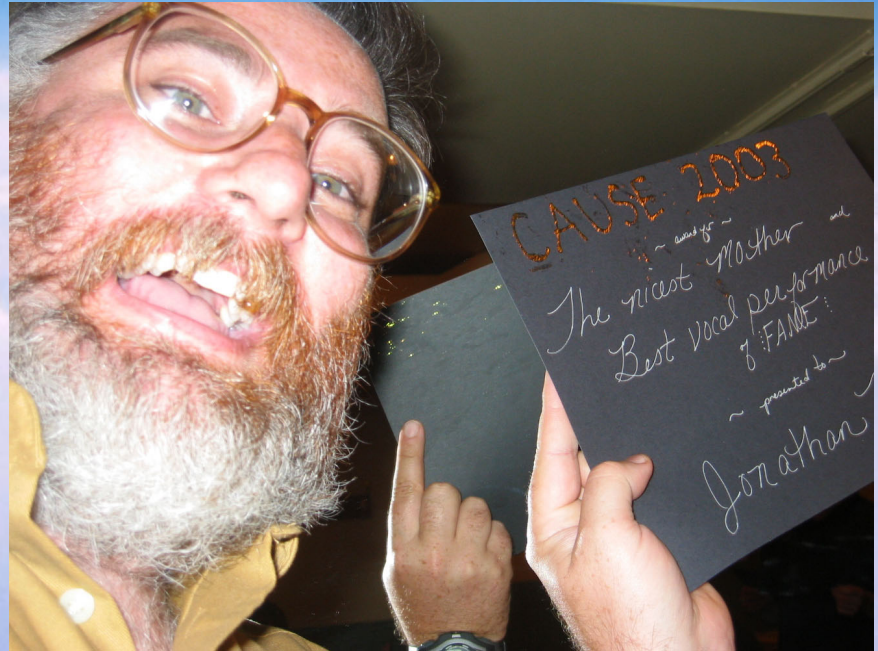 CAUSE 2003
~ award for ~
The nicest Mother and
Best Vocal performance
of FAME
~ presented to ~
Jonathan